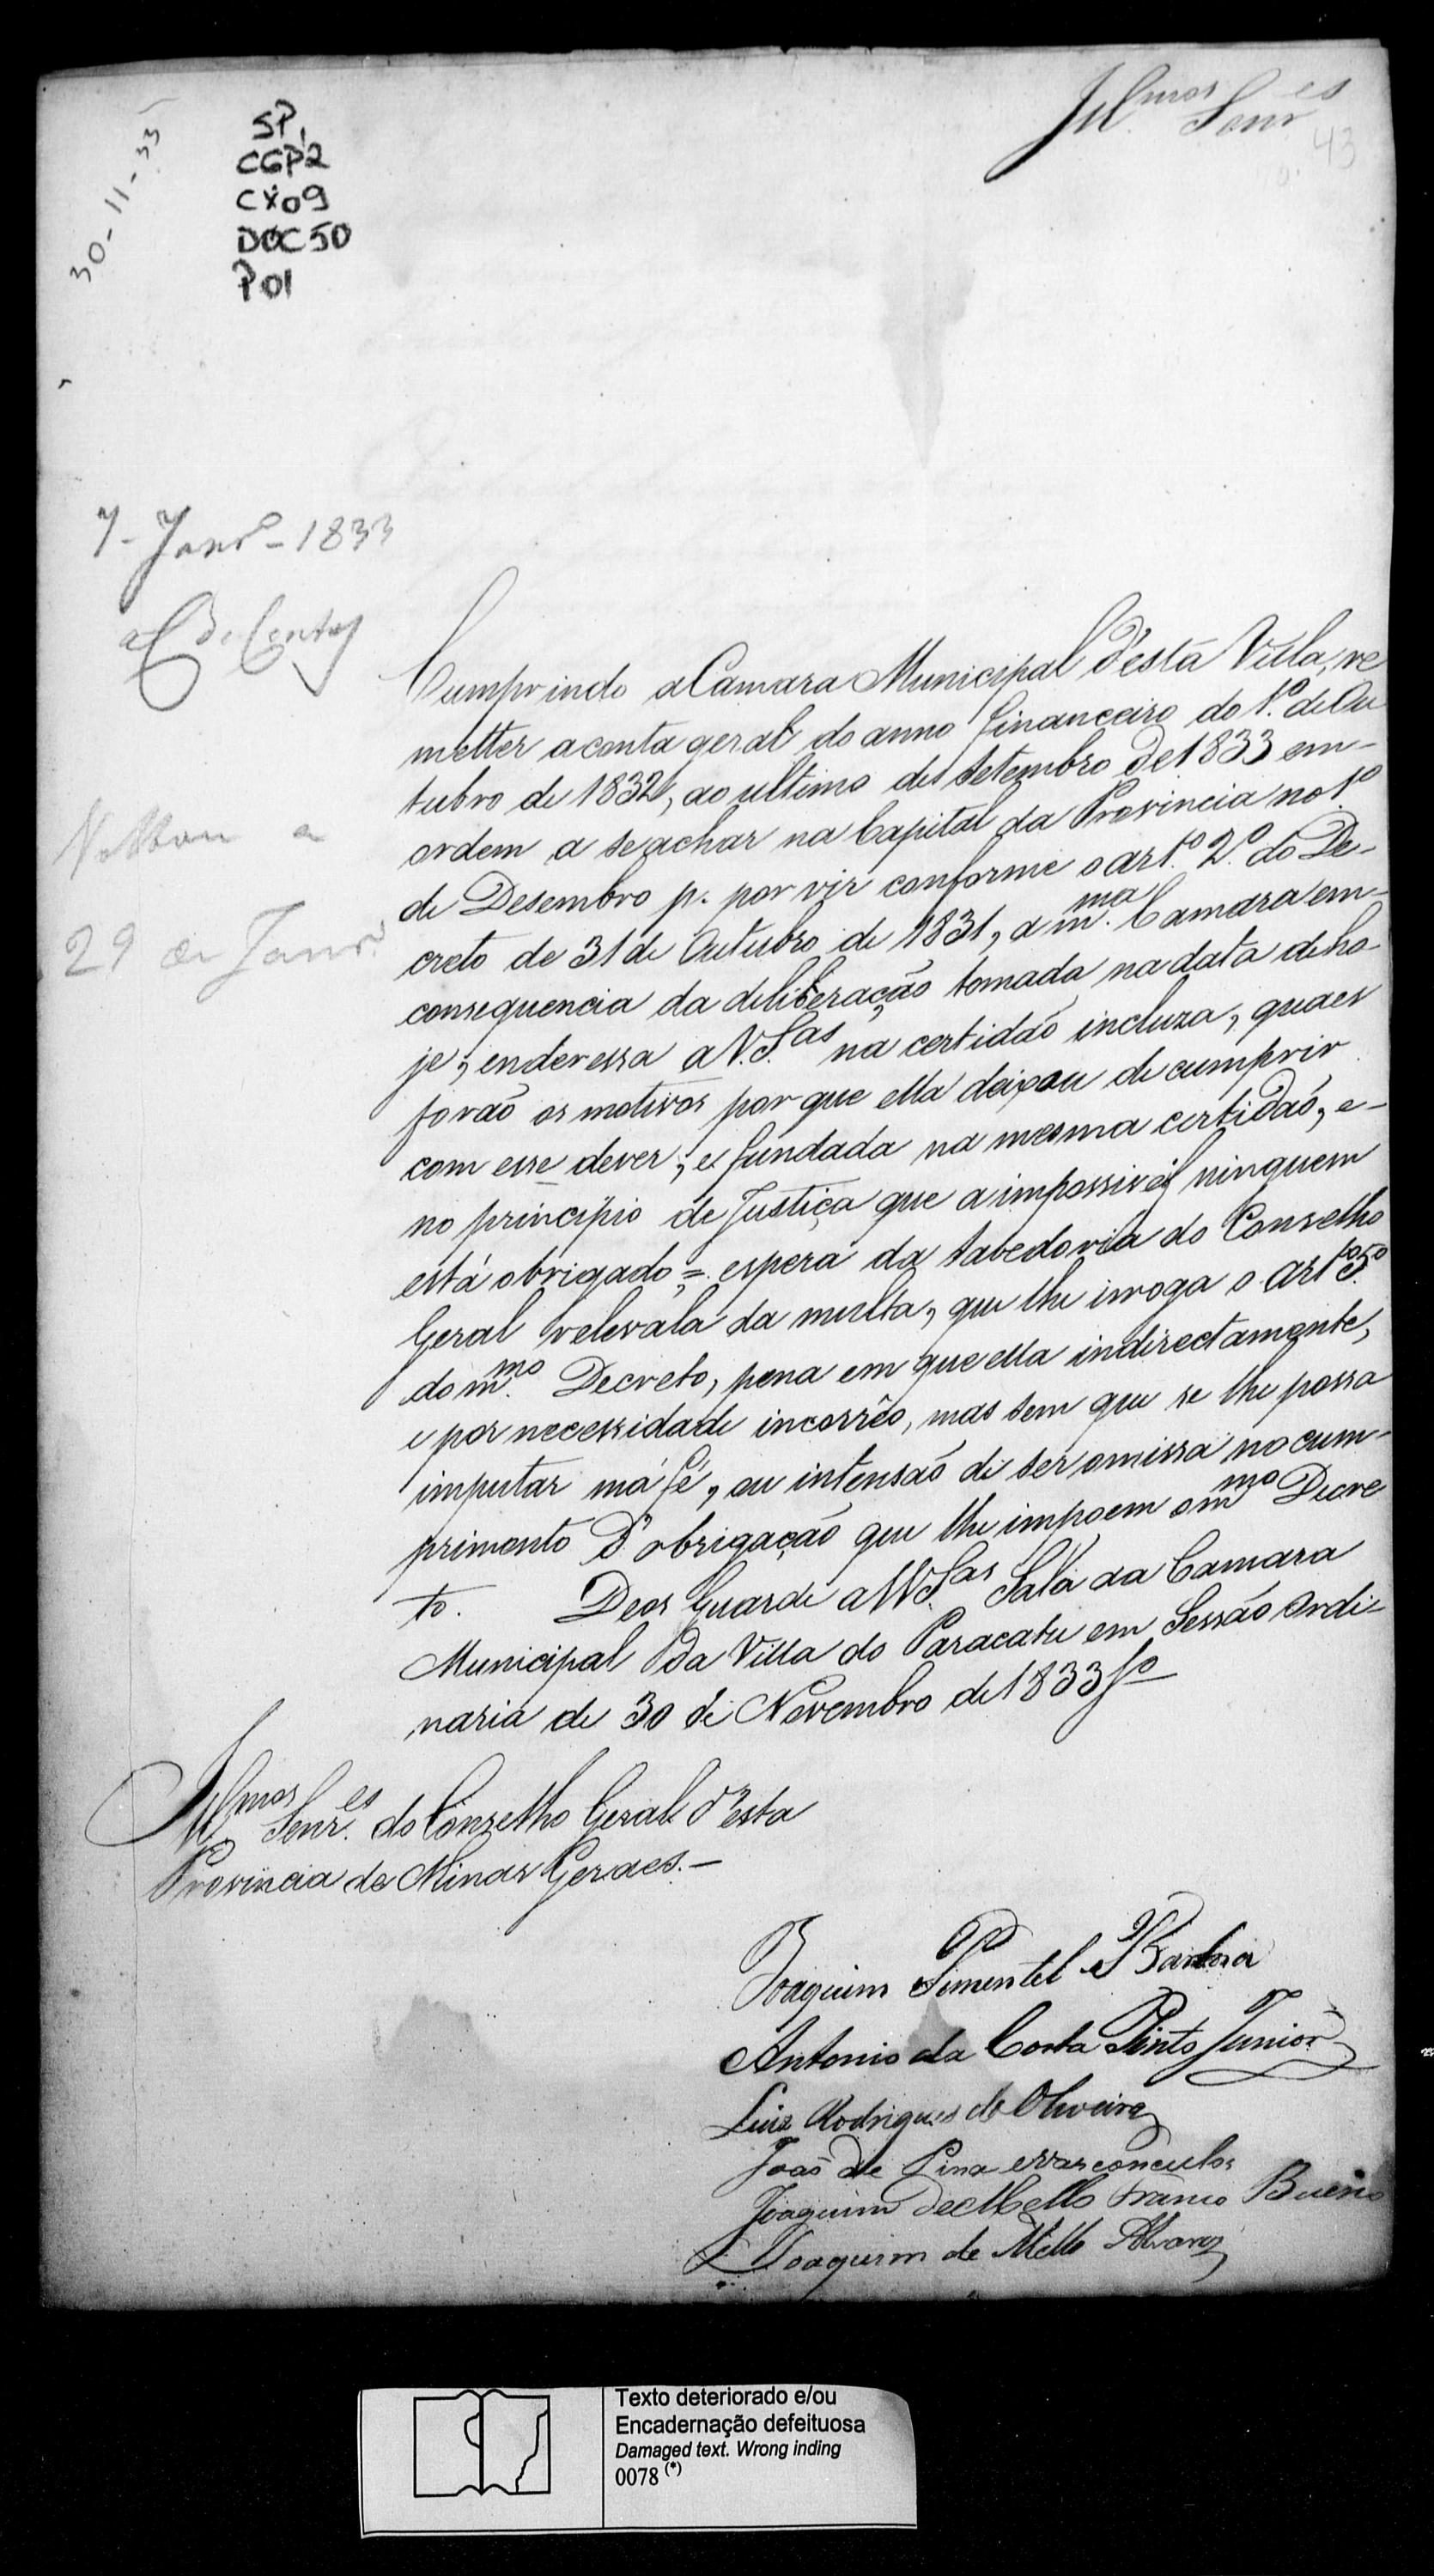 Ill.mos Senr.es
43
30-11-33
SP,
CGP2
CX09
DOC50
P01
7 - Janr.o - 1833
a C. de Contas
Cumprindo a Camara Municipal d'esta Villa, re
metter a conta geral do anno financeiro do 1.o de Ou
tubro de 1832, ao ultimo de Setembro de 1833 em-
ordem a se achar na Capital da Provincia no 1.o
de Desembro p. por vir conforme o art.o 2.o do De-
creto de 31 de Outubro de 1831, a m.ma Camara em-
consequencia da deliberação tomada na data de ho-
je, enderessa a V.S.as na certidão incluza, quaes
forão os motivos por que ella deixou de cumprir
com esse dever, e fundada na mesma certidão, e-
no principio de Justiça que a impossivel ninguem
está obrigado =, espera da Sabedoria do Conselho
Geral relevala da multa, que lhe irroga o art.o 5.o
do m.mo Decreto, pena em que ella indirectamente,
e por necessidade incorrêo, mas sem que se lhe possa
imputar má fé, ou intensão de ser omissa no cum-
primento d'obrigação que lhe impoem o m.mo Decre
to. Deos Guarde a VV.S.as Sala da Camara
Municipal da Villa do Paracatu em Sessão Ordi-
naria de 30 de Novembro de 1833
29 de Janr.o
Ill.mos Senr.es do Conselho Geral d'esta
Provincia de Minas Geraes.-
Joaquim Pimentel Barboza
Antonio da Costa Pinto Junior
Luiz Rodrigues de Oliveira
João de Pina e Vasconculos
Joaquim de Mello Franco Bueno
Joaquim de Mello Alvares
Texto deteriorado e/ou
Encadernação defeituosa
Damaged text. Wrong inding
0078 (*)